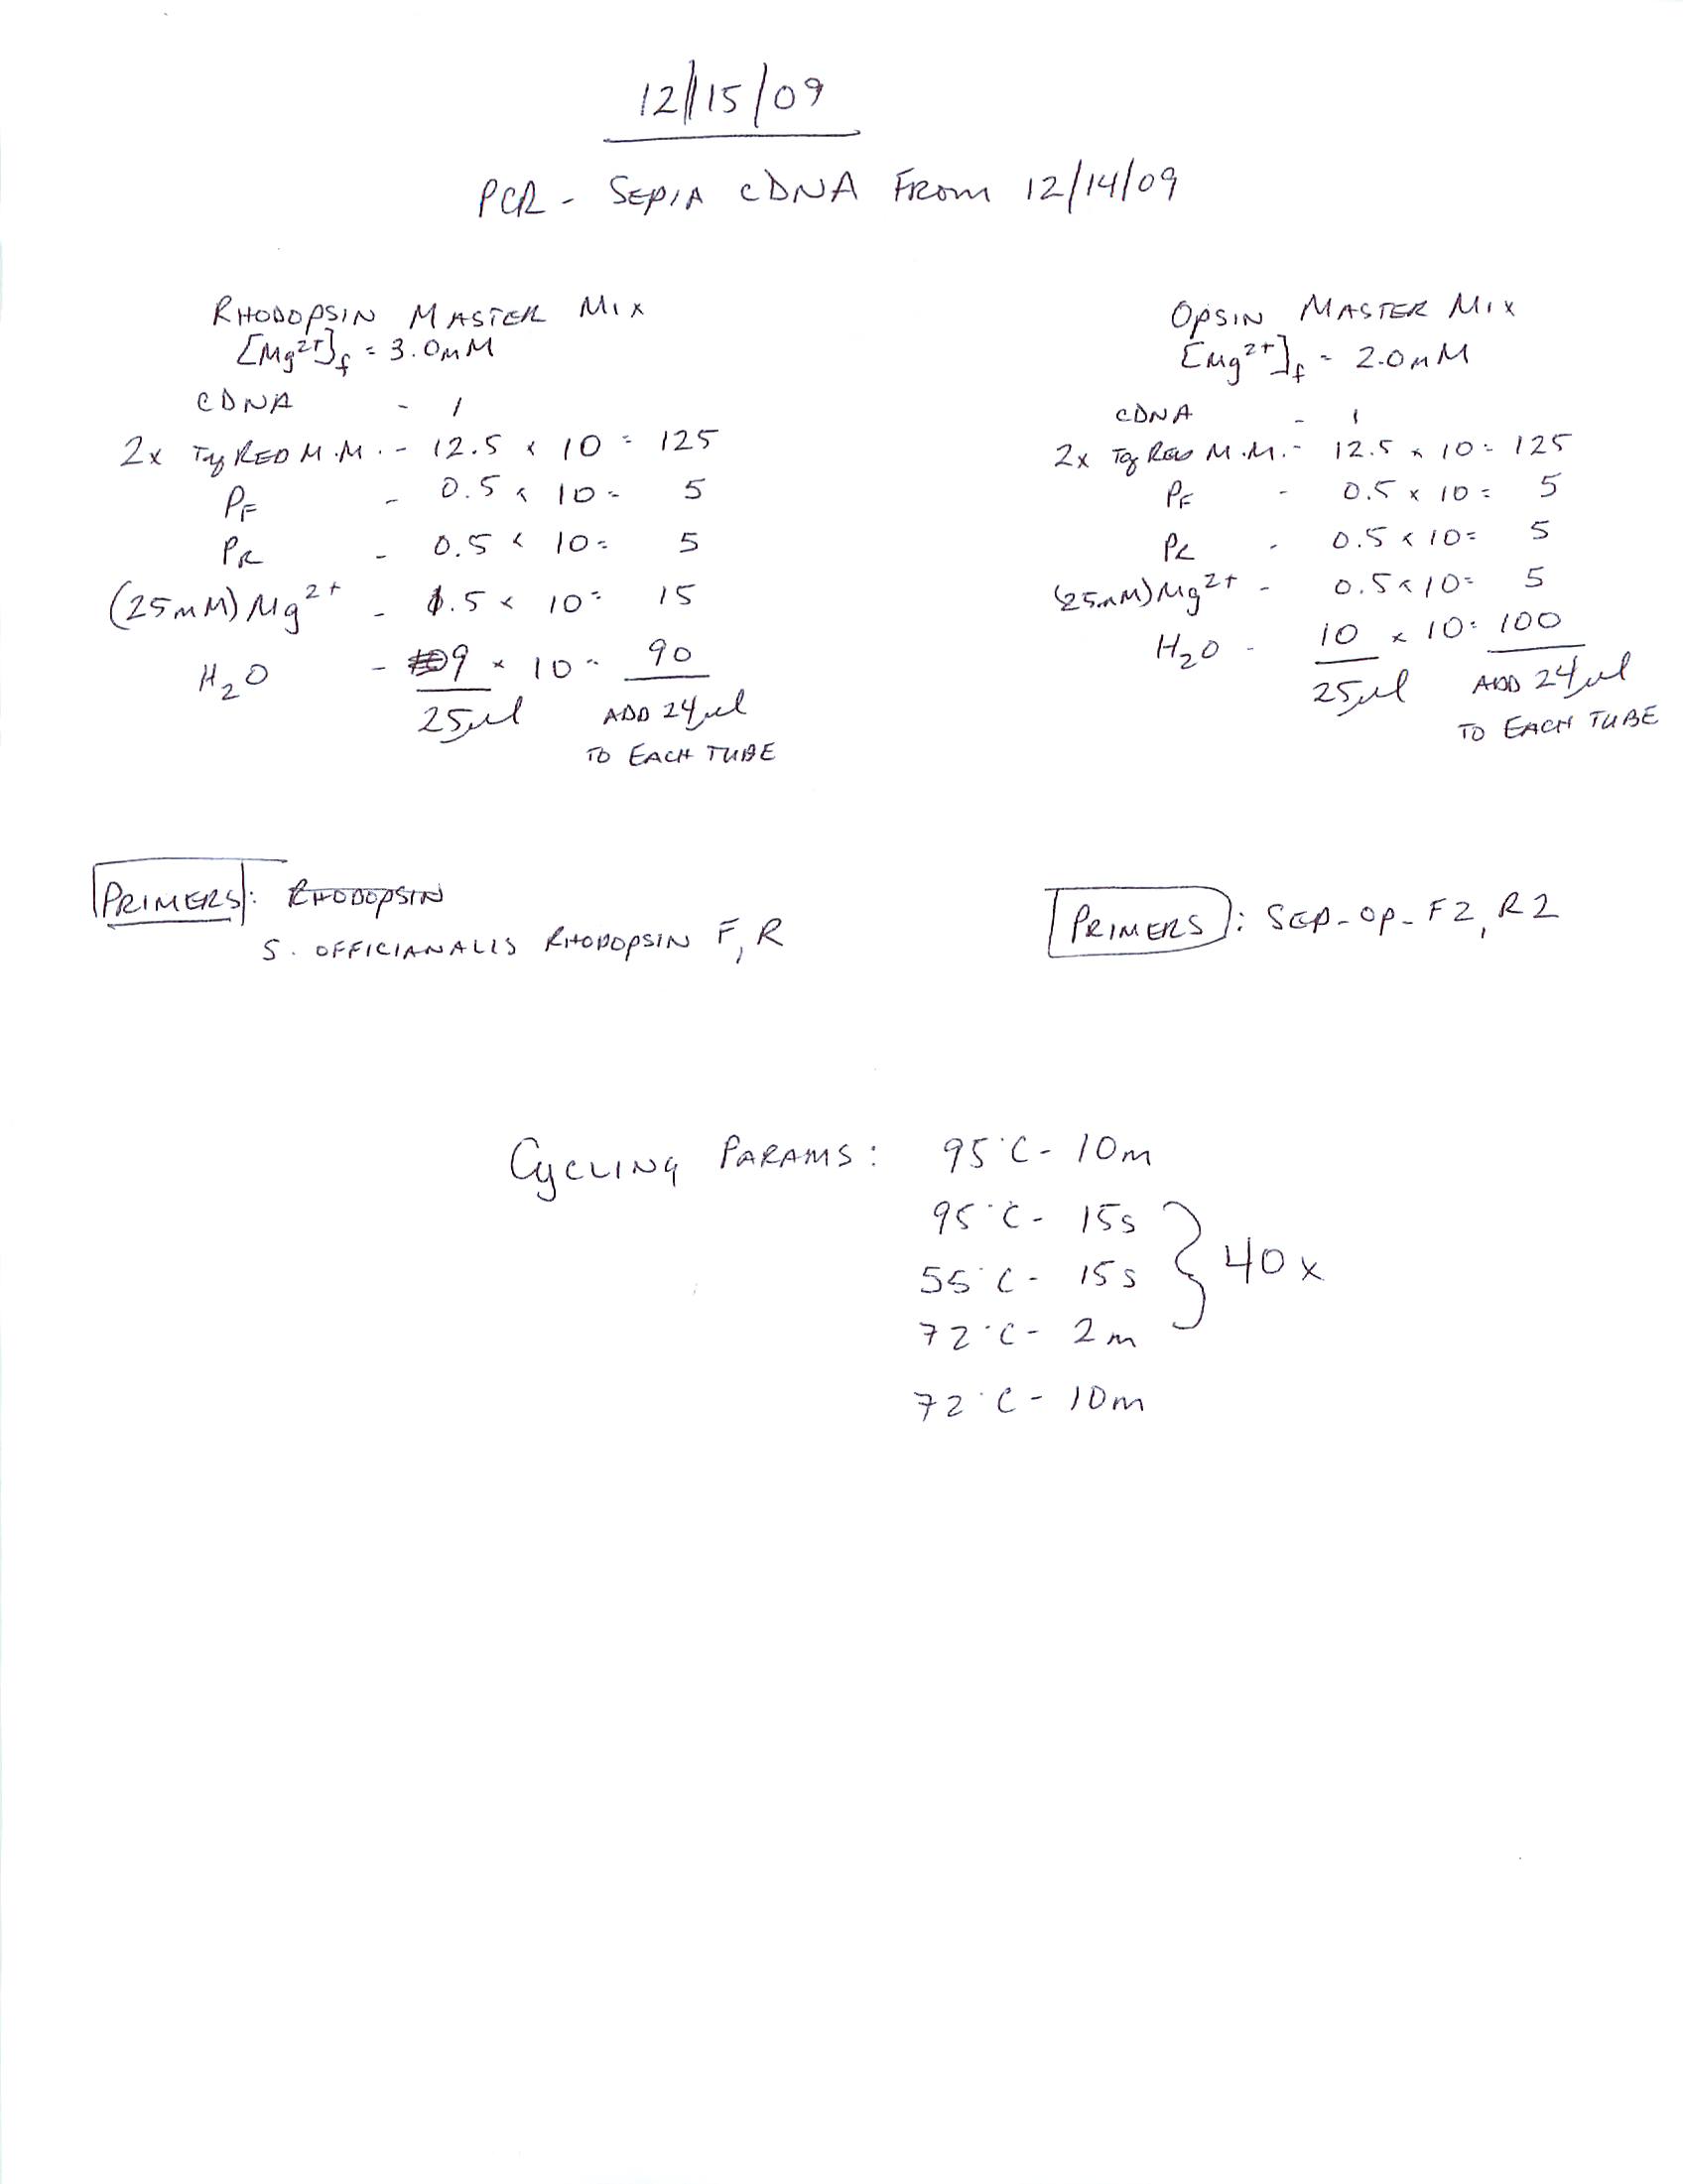 12/15/09
PCR - SEPIA cDNA FROM 12/14/09
RHODOPSIN MASTER MIX
[Mg2+]f = 3.0mM
cDNA - 1
2x Taq RED M.M. - 12.5 x 10 = 125
PF - 0.5 x 10 = 5
PR - 0.5 x 10 = 5
(25mM) Mg2+ - 1.5 x 10 = 15
H2O - 9 x 10 = 90
25µl ADD 24µl
TO EACH TUBE
OPSIN MASTER MIX
[Mg2+]f = 2.0mM
cDNA - 1
2x Taq RED M.M. - 12.5 x 10 = 125
PF - 0.5 x 10 = 5
PR - 0.5 x 10 = 5
(25mM) Mg2+ - 0.5 x 10 = 5
H2O - 10 x 10 = 100
25µl ADD 24µl
TO EACH TUBE
PRIMERS: RHODOPSIN
S. OFFICIANALIS RHODOPSIN F, R
PRIMERS: SEP-OP-F2, R2
CYCLING PARAMS: 95°C - 10m
95°C - 15s
55°C - 15s } 40x
72°C - 2m
72°C - 10m